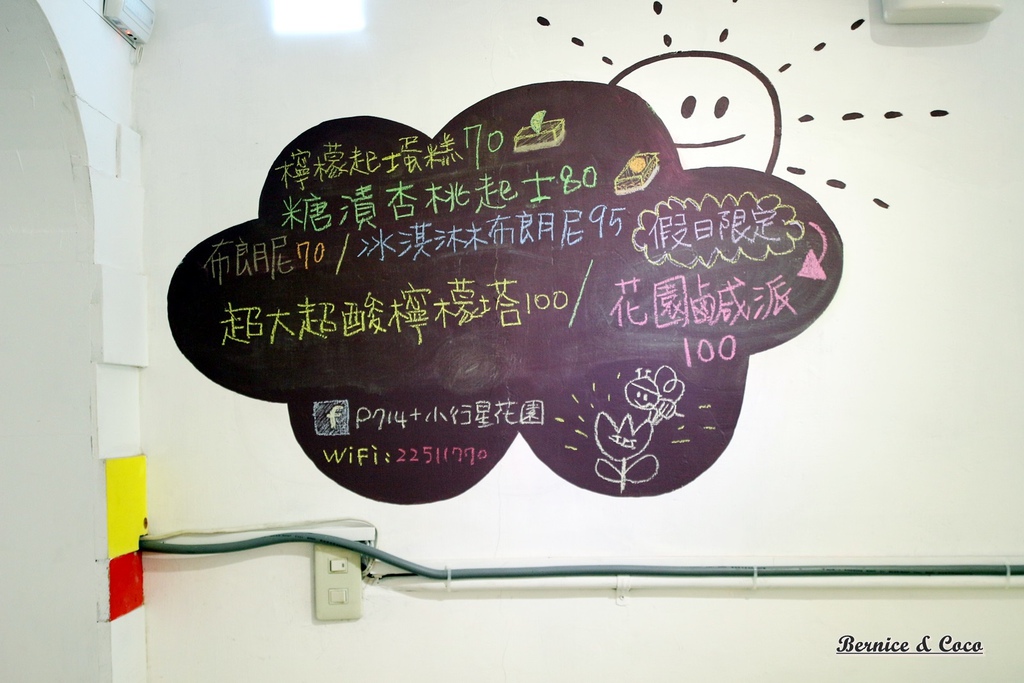 檸檬起士蛋糕70
糖漬杏桃起士80
布朗尼70/冰淇淋布朗尼95
假日限定
超大超酸檸檬塔100/
花園鹹派
100
f P714+小行星花園
WiFi:22511770
Bernice & Coco